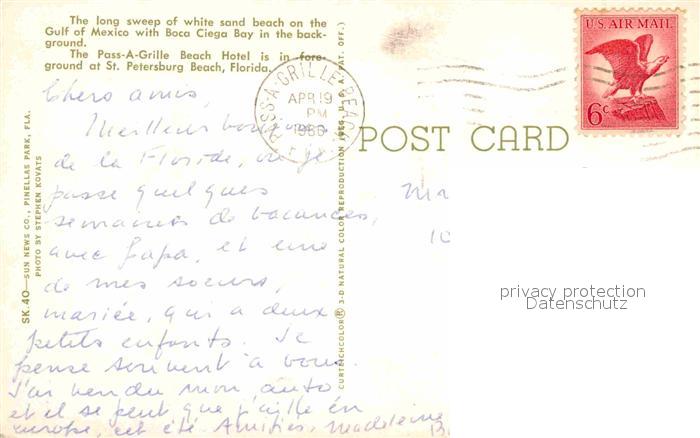 The long sweep of white sand beach on the
Gulf of Mexico with Boca Ciega Bay in the back-
ground.
The Pass-A-Grille Beach Hotel is in fore-
ground at St. Petersburg Beach, Florida.
SK.40—SUN NEWS CO., PINELLAS PARK, FLA.
PHOTO BY STEPHEN KOVATS
Chers amis,
Meilleur
de la Floride, où je
passe quelques
semaines de vacances,
avec Papa, et une
de mes soeurs,
mariée, qui a deux
petits enfants. Je
pense souvent à vous.
J'ai vendu mon auto
et il se peut que j'aille en
europe, cet été. Amitiés, Madeleine
CURTEICHCOLOR® 3-D NATURAL COLOR REPRODUCTION (REG. U.S.A. PAT. OFF.)
PASS-A-GRILLE BEACH
APR 19
PM
POST CARD
U.S. AIR MAIL
6c
privacy protection
Datenschutz